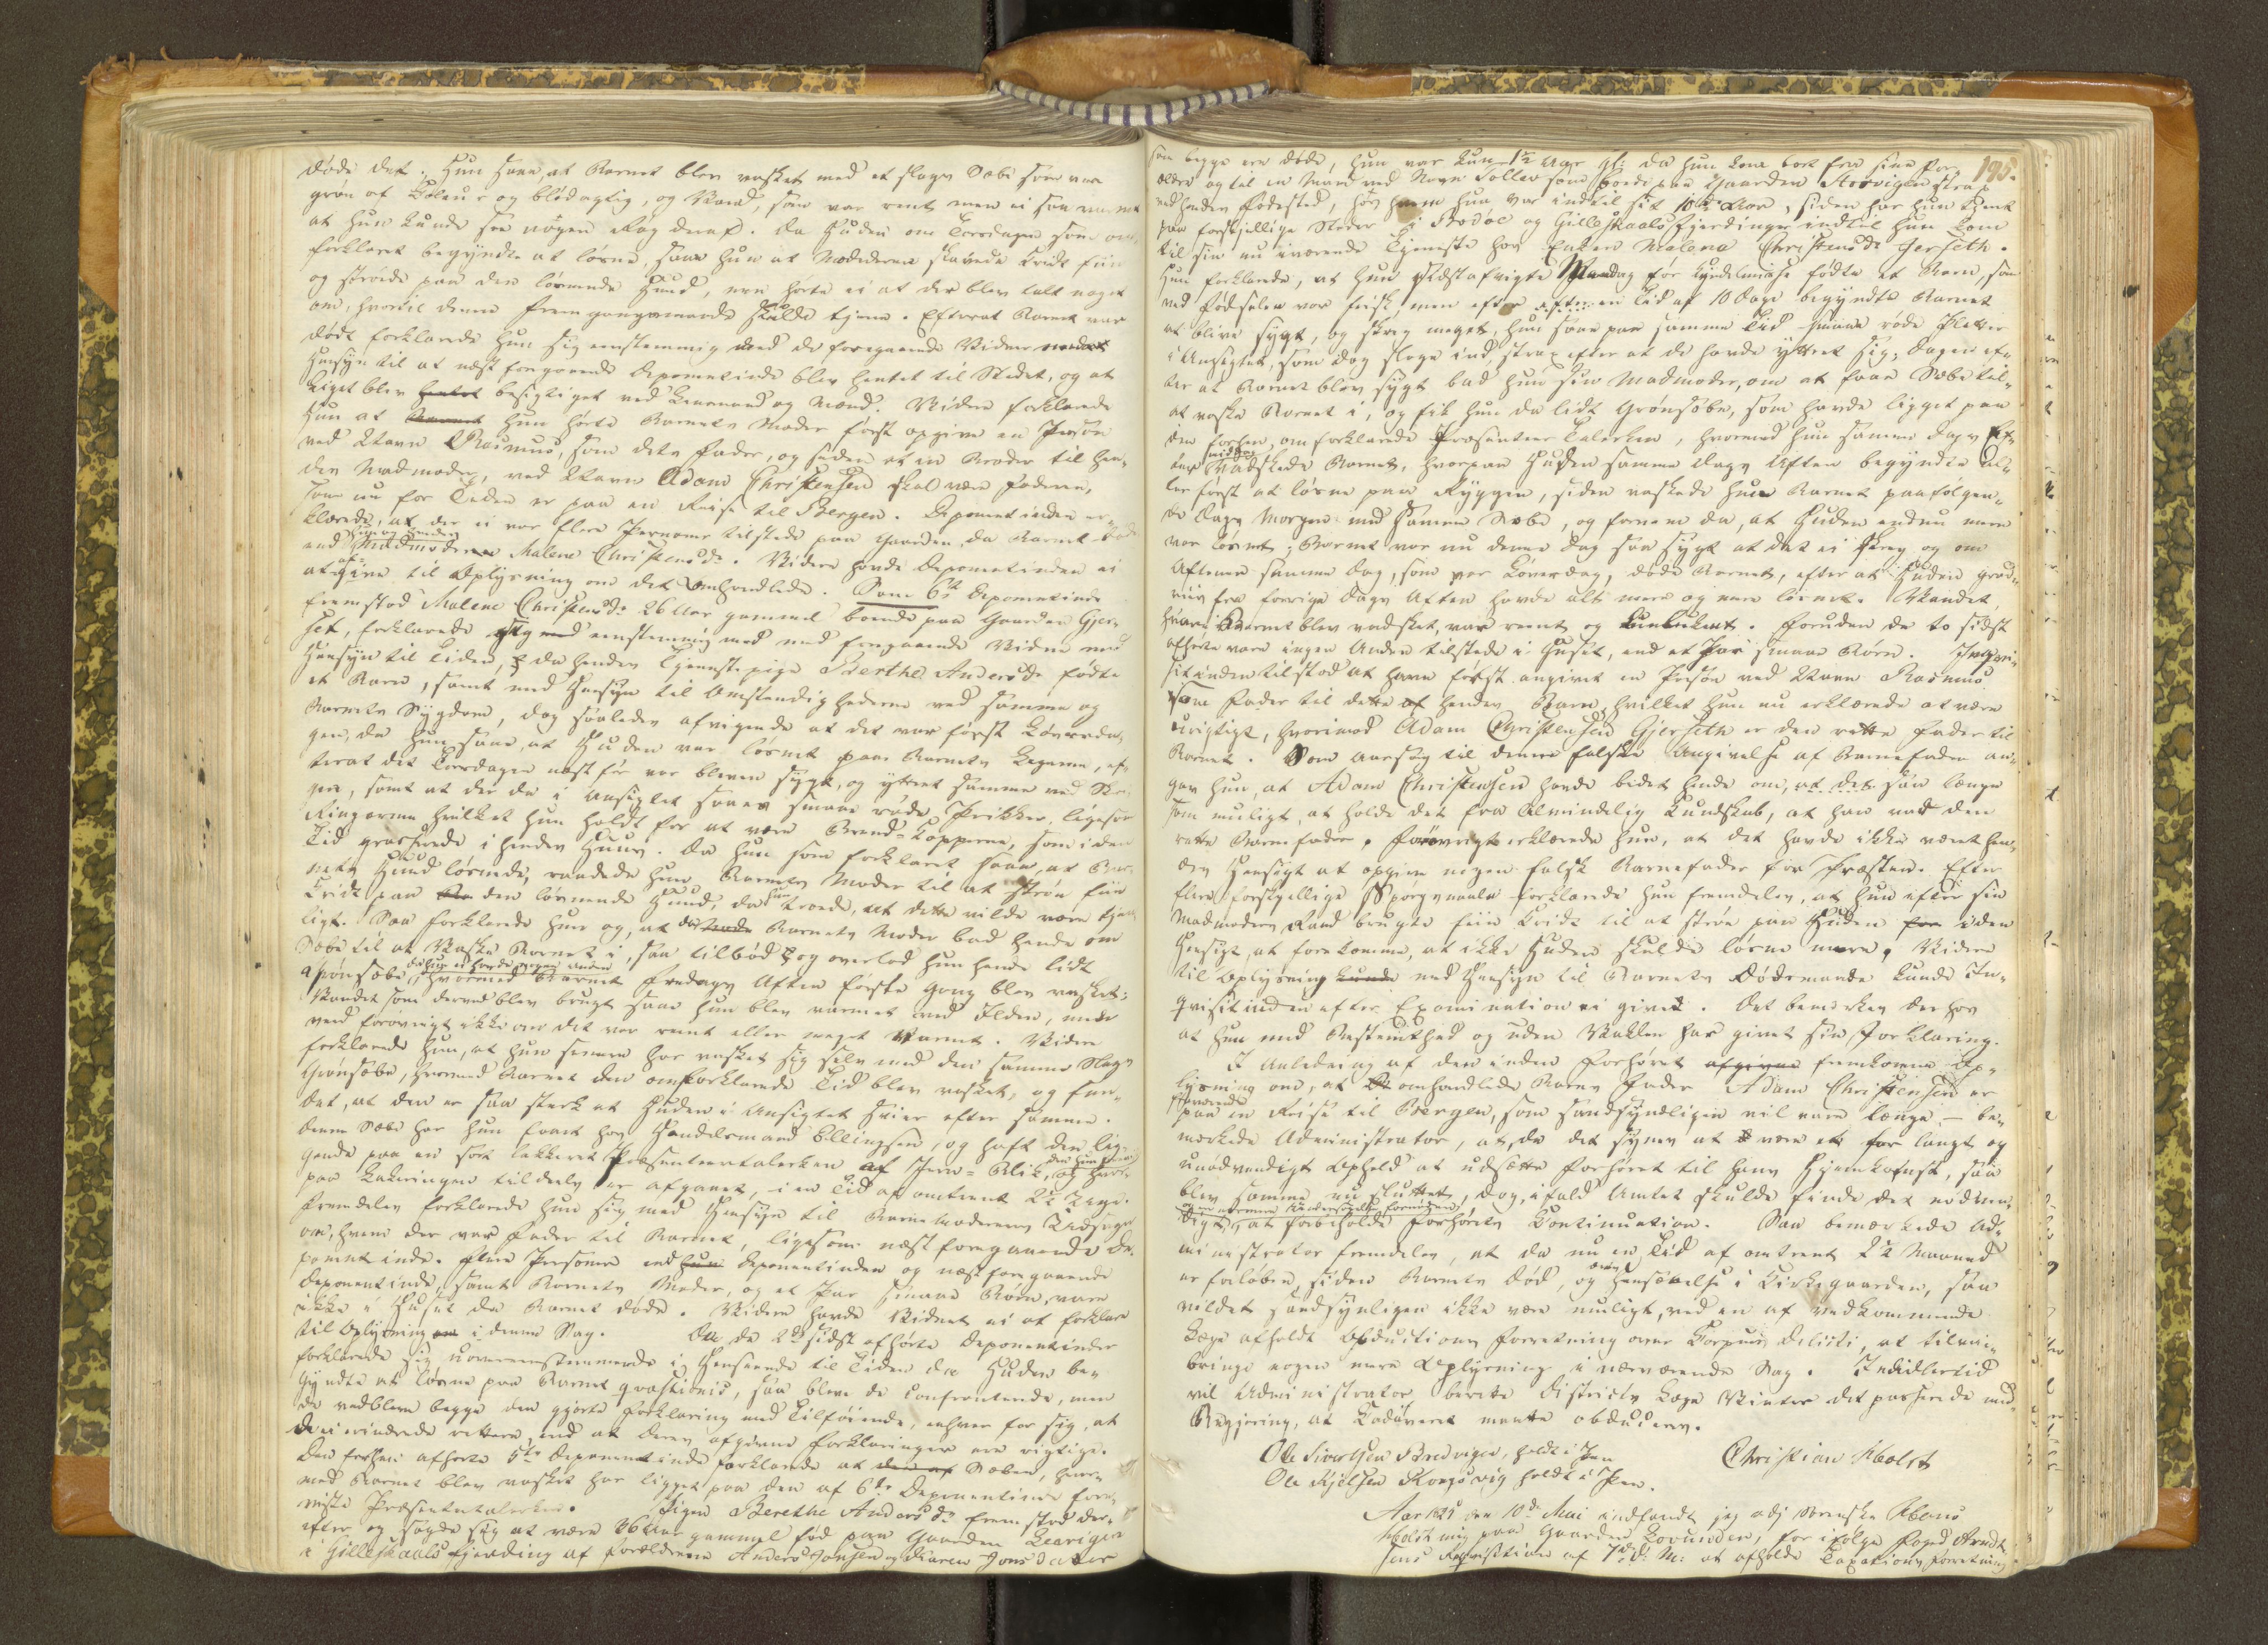 døde det. Hun saae, at Barnet blev vasket med et slags Sæbe som var
grøn af Coleur og blødagtig, og Vand, som var reent men ei saa varmt
at hun kunde see nogen Røg deraf. Da Huden om Torsdagen som om-
forklaret begyndte at løsne, saae hun at Moderen skavede Kridt fiin
og strøede paa den løsnende Hud, men hørte ei at der blev talt noget
om, hvortil denne Fremgangsmaade skulde tjene. Efterat Barnet var
dødt forklarede hun sig eenstemmig med de foregaaende Vidner med
Hensyn til at næst foregaaende Deponentinde blev hentet til Stedet, og at
Liget blev besigtiget ved Lensmand og Mænd. Videre forklarede
hun at hun hørte Barnets Moder først opgive en Person
ved Navn Rasmus, som dets Fader, og siden at en Broder til hen-
des Madmoder, ved Navn Adam Christensen skal være Faderen,
som nu for Tiden er paa en Reise til Bergen. Deponentinden er-
klærede, at der ei var flere Personer tilstede paa Gaarden, da Barnet døde
end Madmoderen Malene Christensd:. Videre havde Deponentinden ei
at give til Oplysning om det Omhandlede. Som 6te Deponentinde
fremstod Malene Christensd: 26 Aar gammel boende paa Gaarden Gjer-
set, forklarede sig eenstemmig med foregaaende Vidne med
Hensyn til Tiden, da hendes Tjenestepige Berthe Andersd: fødte
et Barn, samt med Hensyn til Omstændighederne ved samme og
Barnets Sygdom, dog saaledes afvigende at det var først Løverda-
gen, da hun saae, at Huden var løsnet paa Barnets Legeme, ef-
terat det Torsdagen næst før var bleven sygt, og yttret samme ved Skri-
gen, samt at der da i Ansigtet saaes smaae røde Prikker, ligesom
Ringorme hvilket hun holdt for at være Brand-Kopperne, som i den
Tid grasserede i hendes Huus. Da hun som forklaret saae, at Bar-
nets Hud løsnede, raadede hun Barnets Moder til at strøe fiin
Kridt paa den løsnende Hud, da hun troede, at dette vilde være tjen-
ligt. Saa forklarede hun og, at da Barnets Moder bad hende om
Sæbe til at vaske Barnet i, saa tilbød og overlod hun hende lidt
Grønsæbe, da hun ei havde nogen anden hvormed Barnet Fredags Aften første Gang blev vasket;
Vandet som derved blev brugt saae hun blev varmet ved Ilden, men
veed forøvrigt ikke om det var reent eller meget varmt. Videre
forklarede hun, at hun senere har vasket sig selv med den samme Slags
Grønsæbe, hvormed Barnet den omforklarede Tid blev vasket, og fun-
det, at den er saa stærk at Huden i Ansigtet svier efter samme.
Denne Sæbe har hun faaet hos Handelsmand Ellingsen, og haft den lig-
gende paa en sort lakkeret Præsenteertalerken af Jern-Blik,
paa Lakeringen tildeels er afgaaet, i en Tid af omtrent 2½ Uge.
Fremdeles forklarede hun sig med Hensyn til Barnemoderens Udsigende
om, hvem der var Fader til Barnet, ligesom næst foregaaende De-
ponentinde. Flere Personer end Deponentinden og næst foregaaende
Deponentinde, samt Barnets Moder, og et Par smaae Børn, vare
ikke i Huset da Barnet døde. Videre havde Vidnet ei at forklare
til Oplysning i denne Sag. Da de 2de sidst afhørte Deponentinder
forklarede sig uoverensstemmende i Henseende til Tiden da Huden be-
gyndte at løsne paa Barnet qvæstionis, saa bleve de confronterede, men
de vedbleve begge den gjorte Forklaring med Tilføiende, enhver for sig, at
de ei erindrede rettere, end at deres afgivne Forklaringer ere rigtige.
Den forhen afhørte 5te Deponentinde forklarede at Sæben, hvor-
med Barnet blev vasket har ligget paa den af 6te Deponentinde for-
viste Præsenteertalerken. Pigen Berethe Andersd: fremstod der-
efter og sagde sig at være 26 Aar gammel fød paa Gaarden
i Gilleskaals Fjerding af Forældrene Anders Jonsen og Karen Jonsdatter
195.
som begge ere døde, hun var kun 1½ Aar gl: da hun kom bort fra sine For-
ældre og til en Mand ved Navn Tollev som boede paa Gaarden Arnvigen strax
ved hendes Fødested, hos hvem hun var indtil sit 10de Aar, siden har hun tjent
paa forskjellige Steder i Bodøe og Gilleskaals Fjerdinger indtil hun kom
til sin nu iværende Tjeneste hos Enken Malena Christensd: Gerseth.
Hun forklarede, at hun sidstafvigte Mandag før Kyndelmisse fødte et Barn, som
ved Fødselen var frisk, men efter en Tid af 10 Dage begyndte Barnet
at blive sygt, og skreg meget, hun saae paa samme Tid smaae røde Pletter
i Ansigtet, som dog sloge ind, strax efter at de havde yttret sig, Dagen ef-
ter at Barnet blev sygt bad hun sin Madmoder, om at faae Sæbe til
at vaske Barnet i, og fik hun da lidt Grønsæbe, som havde ligget paa
den forhen, omforklarede Præsenteer Talerken, hvormed hun samme Dags Ef-
termiddag vadskede Barnet, hvorpaa Huden samme Dags Aften begyndte al-
ler først at løsne paa Ryggen, siden vaskede hun Barnet paafølgen-
de Dags Morgen med samme Sæbe, og fornam da, at Huden endnu mere
var løsnet; Barnet var nu denne Dag saa sygt at det ei skreg og om
Aftenen samme Dag, som var Løverdag, døde Barnet, efter at Huden grad-
viis fra forrige Dags Aften havde alt mere og mere løsnet. Vandet,
hvori Barnet blev vadsket, var reent og lunkent. Foruden de to sidst
afhørte vare ingen Anden tilstede i Huset, end et Par smaae Børn. Inqvi-
sitinden tilstod at have først angivet en Person ved Navn Rasmus
som Fader til dette hendes Barn, hvilket hun nu erklærede at være
urigtigt, hvorimod Adam Christensen Gjerseth er den rette Fader til
Barnet. Som Aarsag til denne falske Angivelse af Barnefader an-
gav hun, at Adam Christensen havde bedet hende om, at det saa længe
som muligt, at holde det fra almindelig Kundskab, at han var den
rette Barnefader, forøvrigt erklærede hun, at det havde ikke været hen-
des Hensigt at opgive nogen falsk Barnefader for Præsten. Efter
flere forskjellige Spørgsmaale forklarede hun fremdeles, at hun efter sin
Madmoders Raad brugte fiin Kridt til at strøe paa Huden i den
Hensigt at forekomme, at ikke Huden skulde løsne mere. Videre
til Oplysning med Hensyn til Barnets Dødsmaade kunde In-
qvisitinden efter Examination ei give. Det bemærkes derhos
at hun med Bestemthed og uden Vaklen har givet sin Forklaring.
I Anledning af den under Forhøret fremkomne Op-
lysning om, at omhandlede Barns Fader Adam Christensen er
fraværende paa en Reise til Bergen, som sandsynligen vil vare længe, - be-
mærkede Administrator, at, da det synes at være et for langt og
unødvendigt Ophold at udsætte Forhøret til hans Hjemkomst, saa
blev samme nu sluttet, dog, ifald Amtet skulde finde det nødven-
digt, at forbeholde Forhørets Continuation. Saa bemærkede Ad-
ministrator fremdeles, at da nu en Tid af omtrent 2½ Maaned
er forløben, siden Barnets Død, og Hensættelse i Kirkegaarden, saa
vilde det sandsynligen ikke være muligt, ved en af vedkommende
Læge afholdt Obductions Forretning over Corpus Delicti, at tilveie-
bringe nogen mere Oplysning i nærværende Sag. Imidlertid
vil Administrator berette Districts Læge Winter det passerede med
Begjæring, at Cadaveret maatte obduceres.
Ole Sivertsen Bredvigen, holdt i Pen
Christian Aholst
Ole Kjelsen Kongsvig holdt i Pen.
Aar 1835 den 10de Mai indfandt jeg adj Sorenskr
mig paa Gaarden for ifølge Foged Arndt-
sens Reqvisition af 7de d: M: at afholde Taxations Forretning